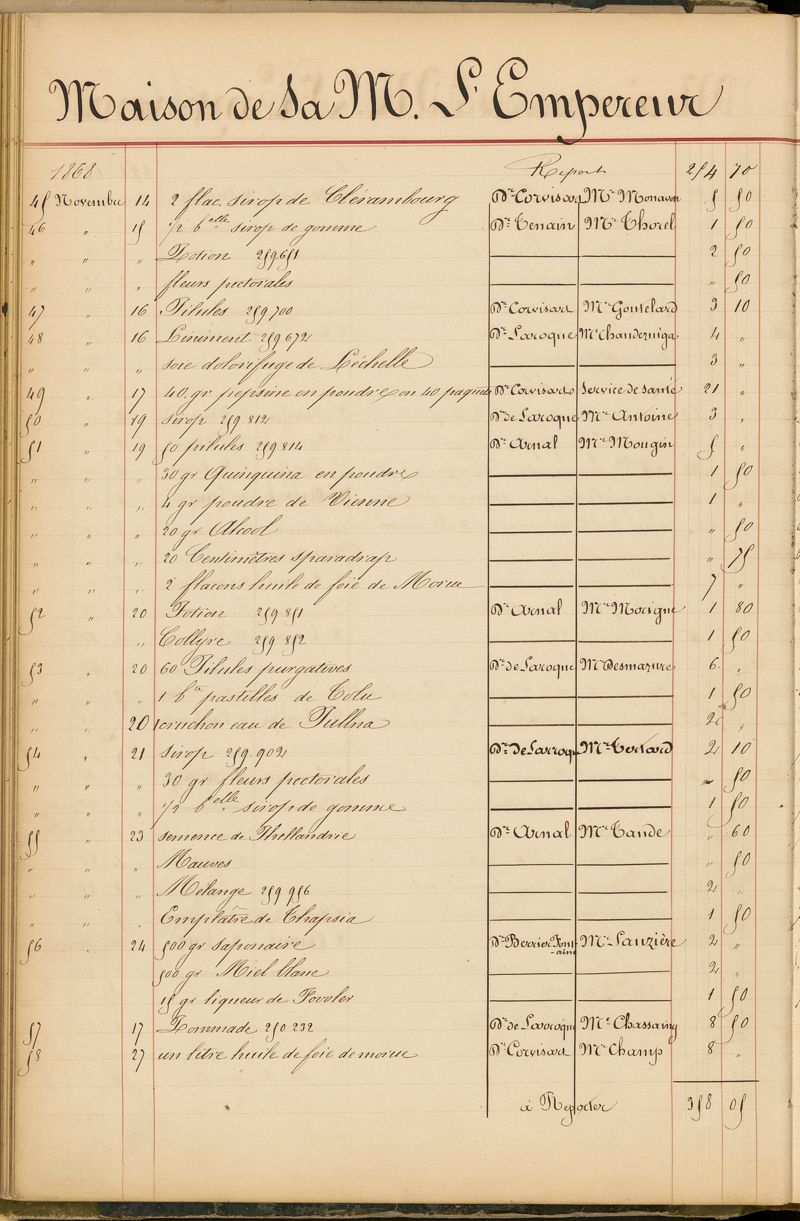 Maison de Sa M. L'Empereur
1868 Report 254 70
45 Novembre 14 2 flac. sirop de Clérambourg Dr Corvisart Mr Monavon 5 50
46 " 15 1/2 belle sirop de gomme Dr Tenain Mr Thorel 1 50
" " " Potion 259651 2 50
" " " fleurs pectorales " 50
47 " 16 Pilules 259700 Dr Corvisart Mr Goutelard 3 10
48 " 16 Liniment 259672 Dr Laroque Mr 4 "
" " " soie dolorifuge de Léchelle 3 "
49 " 17 40 gr pepsine en poudre en 40 paquets Dr Corvisart Service de Santé 21 "
50 " 19 Sirop 259 812 Dr de Laroque Mr Antoine 3 "
51 " 19 50 pilules 259814 Dr Arnal Mr Mougin 5 "
" " " 30 gr Quinquina en poudre 1 50
" " " 4 gr poudre de Vienne 1 "
" " " 20 gr Alcool " 50
" " " 20 Centimètres sparadrap " 75
" " " 2 flacons huile de foie de Morue 7 "
52 " 20 Potion 259 851 Dr Arnal Mr Morigne 1 80
" Collyre 259 852 1 50
53 " 20 60 Pilules purgatives Dr de Laroque Mr Desmazure 6 "
" " " 1 bte pastilles de Tolu 1 50
" " 20 1 cruchon eau de Pullna 2 "
54 " 21 Sirop 259.902 Dr De Larroque Mr 2 10
" " " 30 gr fleurs pectorales " 50
" " " 1/2 belle sirop de gomme 1 50
55 " 23 semence de Phellandrie Dr Arnal Mr Tande " 60
" " " Mauves " 50
" " " Melange 259 956 2 "
" " " Emplâtre de Thapsia 1 50
56 " 24 500 gr saponaire Dr Berrier Font-aine Mr Lauzière 2 "
500 gr Miel blanc 2 "
15 gr liqueur de Fowler 1 50
57 17 Pommade 250 232 Dr de Larroque Mr Chassaing 8 50
58 27 un litre huile de foie de morue Dr Corvisart Mr Champ 8 "
à Reporter 358 05